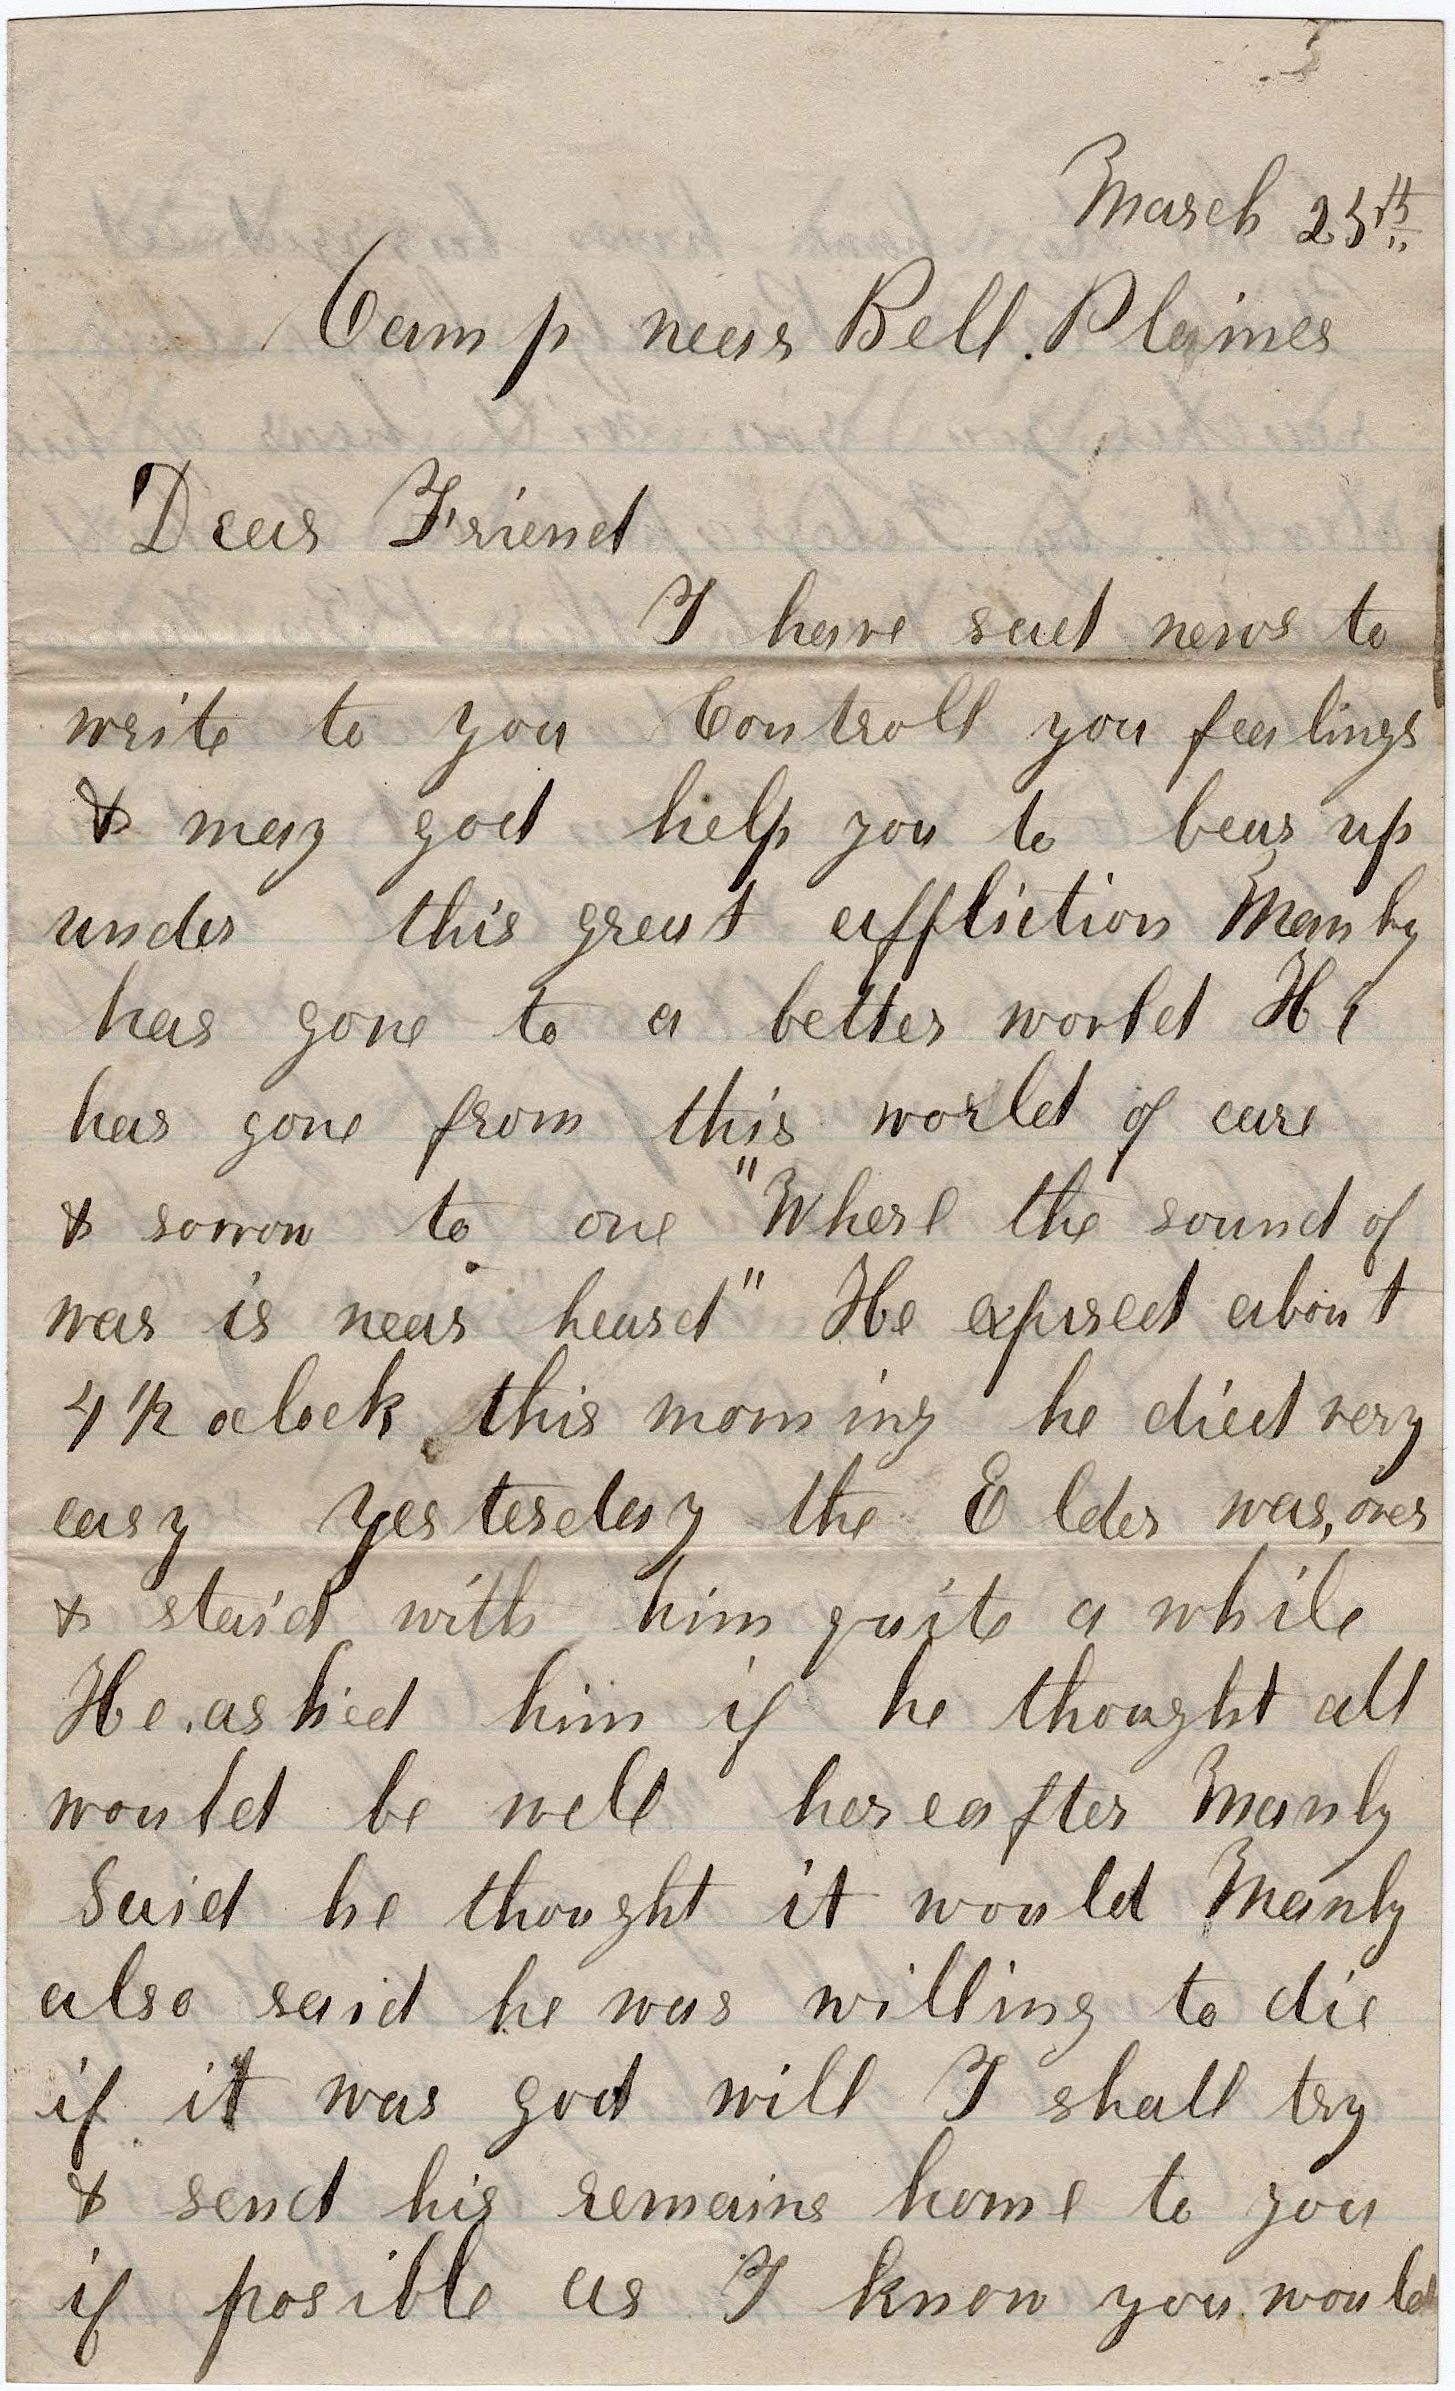 March 25th
Camp near Bell. Plaines
Dear Friend
I have sad news to
write to you Controll you feelings
& may god help you to bear up
under this great affliction Manly
has gone to a better world He
has gone from this world of care
& sorrow to one "Where the sound of
war is near heard" He expired about
4 1/2 oclock this morning he died very
easy Yesterday the Elder was, over
& staid with him quite a while
He. asked him if he thought all
would be well hereafter Manly
Said he thought it would Manly
also said he was willing to die
if it was god will I shall try
& send his remains home to you
if posible as I know you would